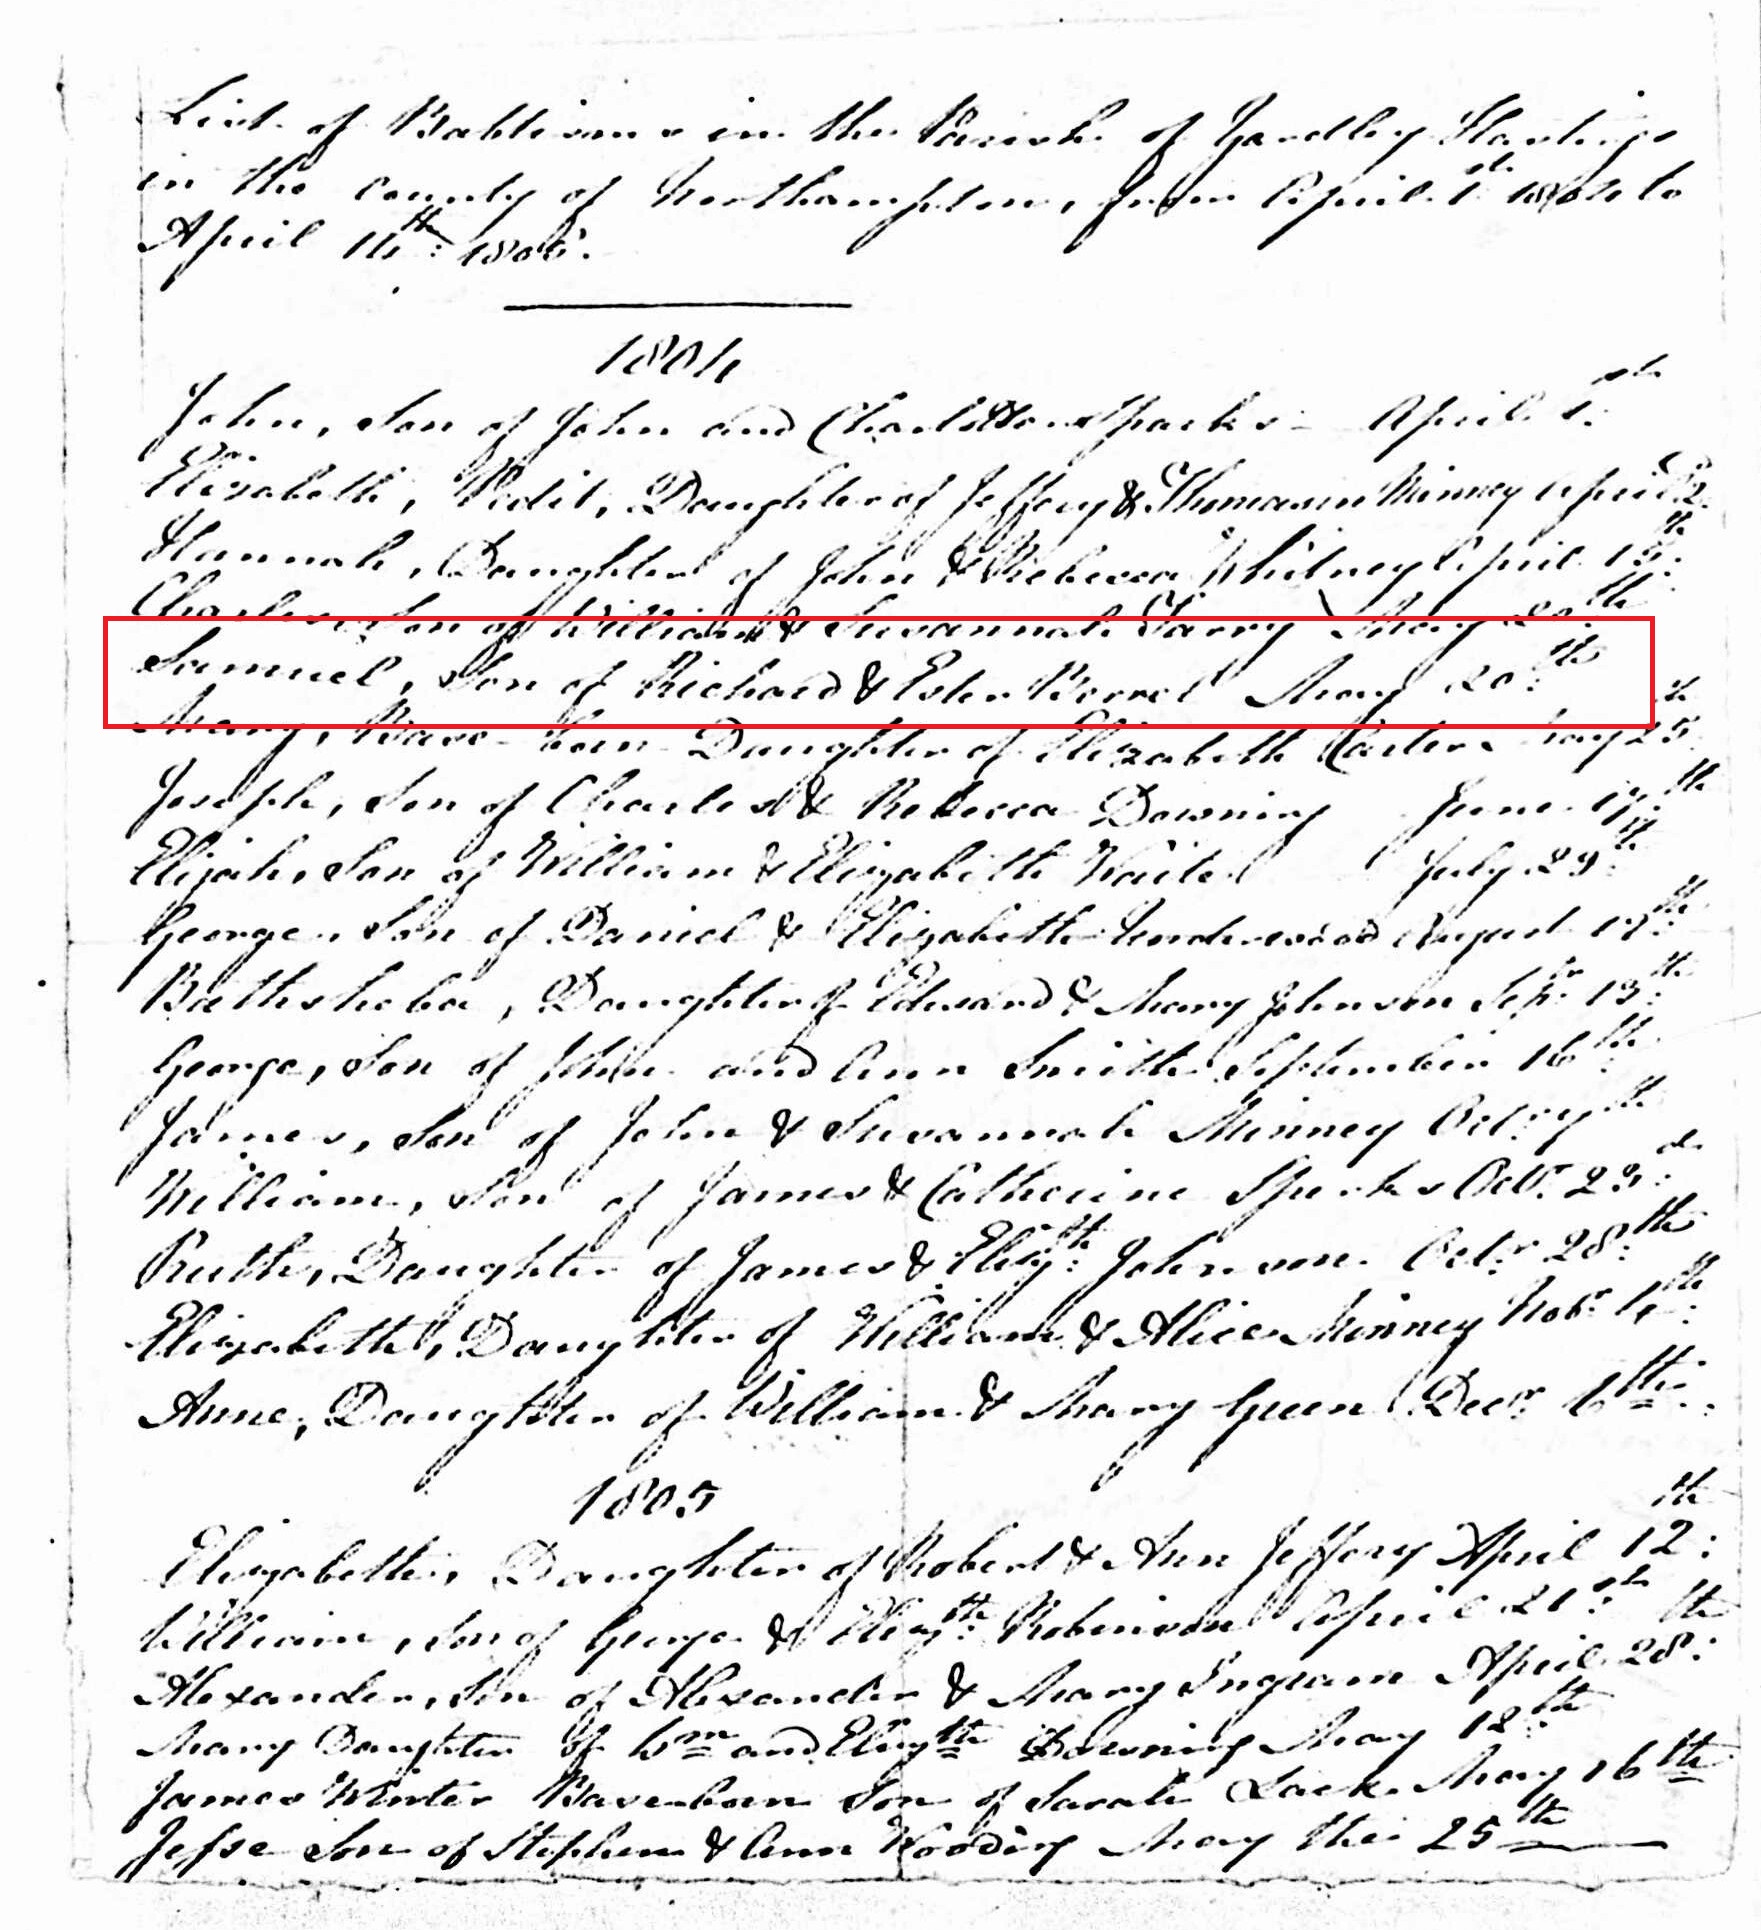 List of Baptisms in the Parish of Yardley Hastings
in the County of Northampton, from April 1st 1804 to
April 14th: 1806.
1804
John, Son of John and Charlotte Sparks - April 1st:
Elizabeth, Daughter of Jeffery & Thomasin Minney April 2
Hannah, Daughter of John & Rebecca Whitney April 15th:
Charles, Son of William & Susannah Tarry May 20th
Samuel, Son of Richard & Ester Borrel May 20th:
Mary, Base-born Daughter of Elizabeth Carter May 25th
Joseph, Son of Charles & Rebecca Downing June 17th:
Elijah, Son of William & Elizabeth Waite July 29th:
George, Son of Daniel & Elizabeth Underwood August 17th:
Bathsheba, Daughter of Edward & Mary Johnson Sepr: 13th:
George, Son of John and Ann Smith September 16th:
James, Son of John & Susannah Minney Octr:
William, Son of James & Catherine Sparks Octr: 23d:
Ruth, Daughter of James & Elizth: Johnson Octr: 28th:
Elizabeth, Daughter of William & Alice Minney Nobr 4th:
Anne, Daughter of William & Mary Green Decr: 6th
1805
Elizabeth, Daughter of Robert & Ann Jeffery April 12th:
William, Son of George & Elizth: Robinson April 21st:
Alexander, Son of Alexander & Mary Ingram April 28th:
Mary Daughter of Wm and Elizth Downing May 12th:
James Winter Base-born Son of Sarah Lack May 16th
Jesse Son of Stephen & Ann Wooding May the 25th